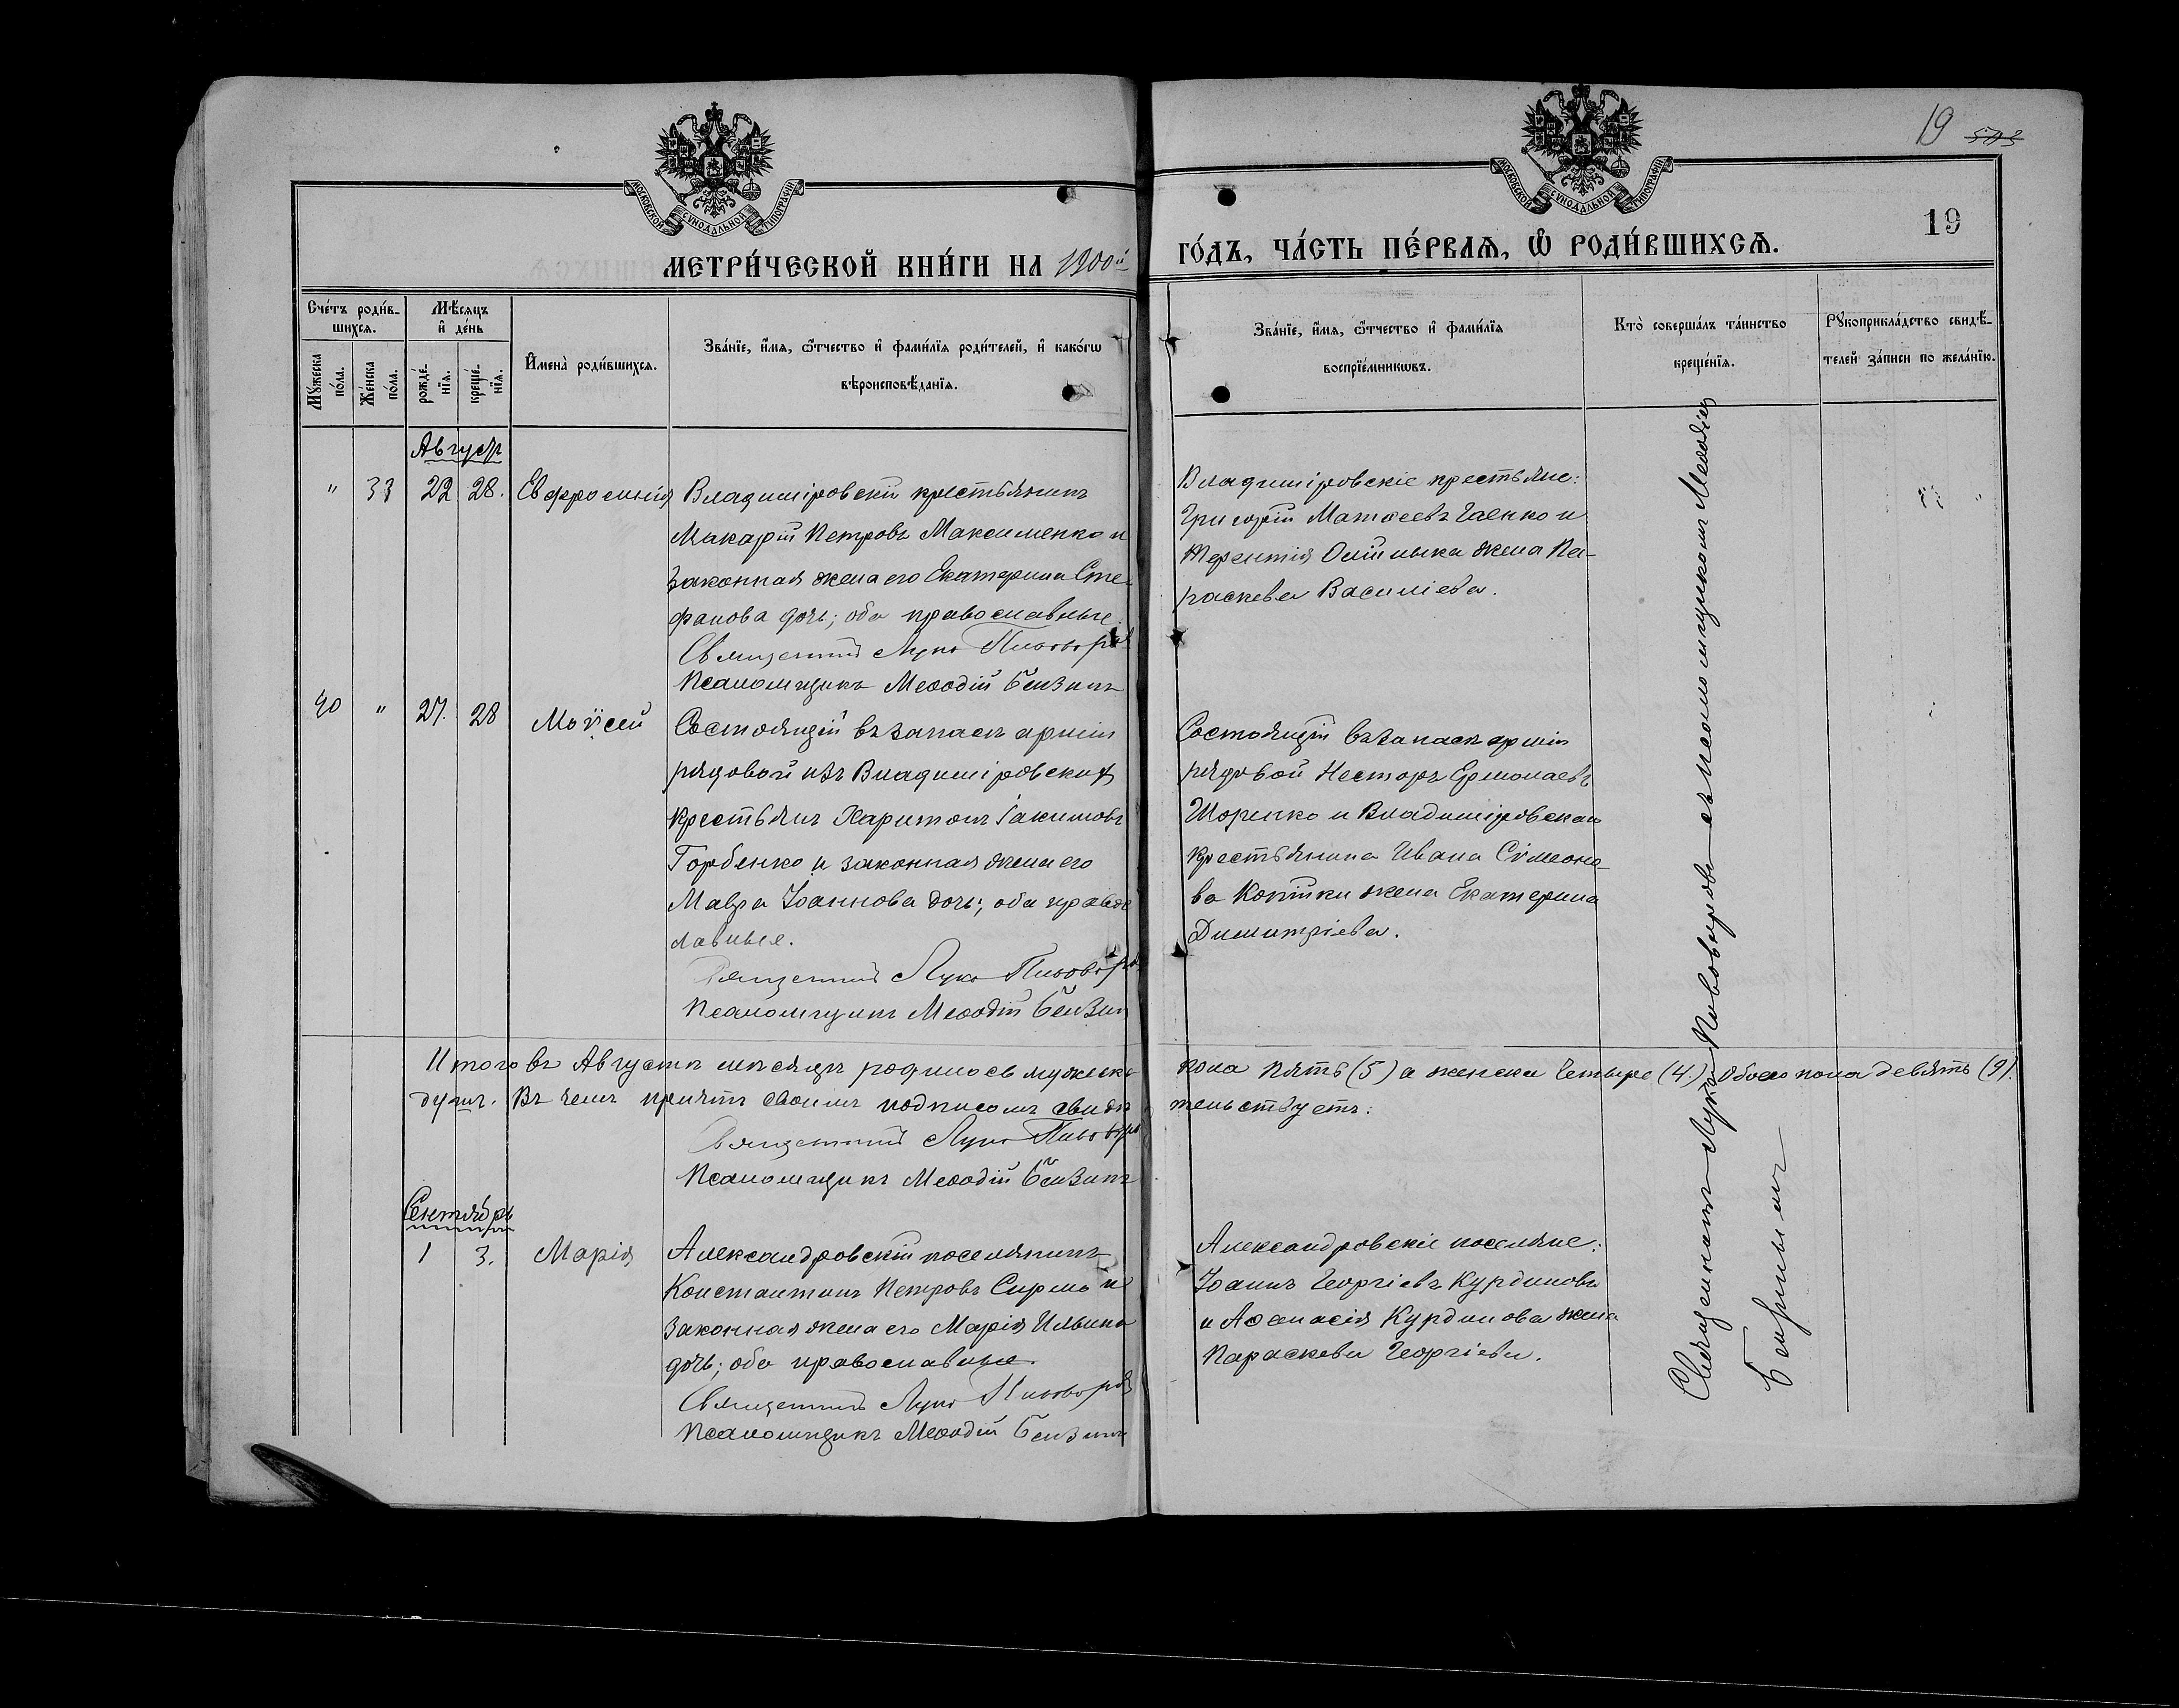 МОСКОВСКОЙ СѴНОДАЛЬНОЙ ТИПОГРАФІИ
МОСКОВСКОЙ СѴНОДАЛЬНОЙ ТИПОГРАФІИ
19 ~~503~~
19
МЕТРИ́ЧЕСКОЙ КНИ́ГИ НА 1900й
ГО́ДЪ, ЧА́СТЬ ПЕ́РВАѦ, Ѽ РОДИ́ВШИХСѦ.
Сче́тъ роди́в-
шихсѧ.
Мꙋ́жеска по́ла.
Же́нска по́ла.
Мѣ́сѧцъ
и҆ де́нь
рожде́-
нїѧ.
креще́-
нїѧ.
И҆мена̀ роди́вшихсѧ.
Зва́нїе, и҆́мѧ, ѻ҆́тчество и҆ фами́лїѧ роди́телей, и҆ како́гѡ
вѣроисповѣ́данїѧ.
Зва́нїе, и҆́мѧ, ѻ҆́тчество и҆ фами́лїѧ
воспрїе́мникѡвъ.
Кто̀ соверша́лъ та́инство
креще́нїѧ.
Рꙋкоприкла́дство свидѣ́-
телей за́писи по жела́нїю.
Августъ
" 33 22 28. Евфросинія
Владимировскій крестьянинъ
Макарій Петровъ Максименко и
законная жена его Екатерина Сте-
фанова дочь; оба православные.
Священникъ Лука Пивоваровъ
Псаломщикъ Меѳодій
Владиміровскіе крестьяне:
Григорій Матѳеевъ Гаенко и
Терентія жена Па-
раскева Василіева.
40 " 27. 28 Моѵсей
Состоящій въ запасѣ арміи
рядовой изъ Владиміровскихъ
крестьянъ Харитонъ Іакимовъ
Горбенко и законная жена его
Мавра Іоаннова дочь; оба правос-
лавные.
Священникъ Лука Пивоваровъ
Псаломщикъ Меѳодій
Состоящій въ запасѣ арміи
рядовой Несторъ Ермолаевъ
Шоренко и Владиміровскаго
крестьянина Ивана Сѵмеоно-
ва жена Екатерина
Димитріева.
Итого въ Августѣ мѣсяцѣ родилось мужеска пола пять (5) а женска четыре (4.) Обоего пола девять (9).
душъ. Въ чемъ причтъ своимъ подписомъ свидѣтельствуетъ:
Священникъ Лука Пивоваровъ
Псаломщикъ Меѳодій
Сентябрь
1 3. Марія
Александровскій поселянинъ
Константинъ Петровъ Сирма и
законная жена его Марія Ильина
дочь; оба православные.
Священникъ Лука Пивоваровъ
Псаломщикъ Меѳодій
Александровскіе поселяне:
Іоаннъ Георгіевъ Курдиновъ
и Аѳанасія Курдинова жена
Параскева Георгіева.
Священникъ Лука Пивоваровъ съ псаломщикомъ Меѳодіемъ